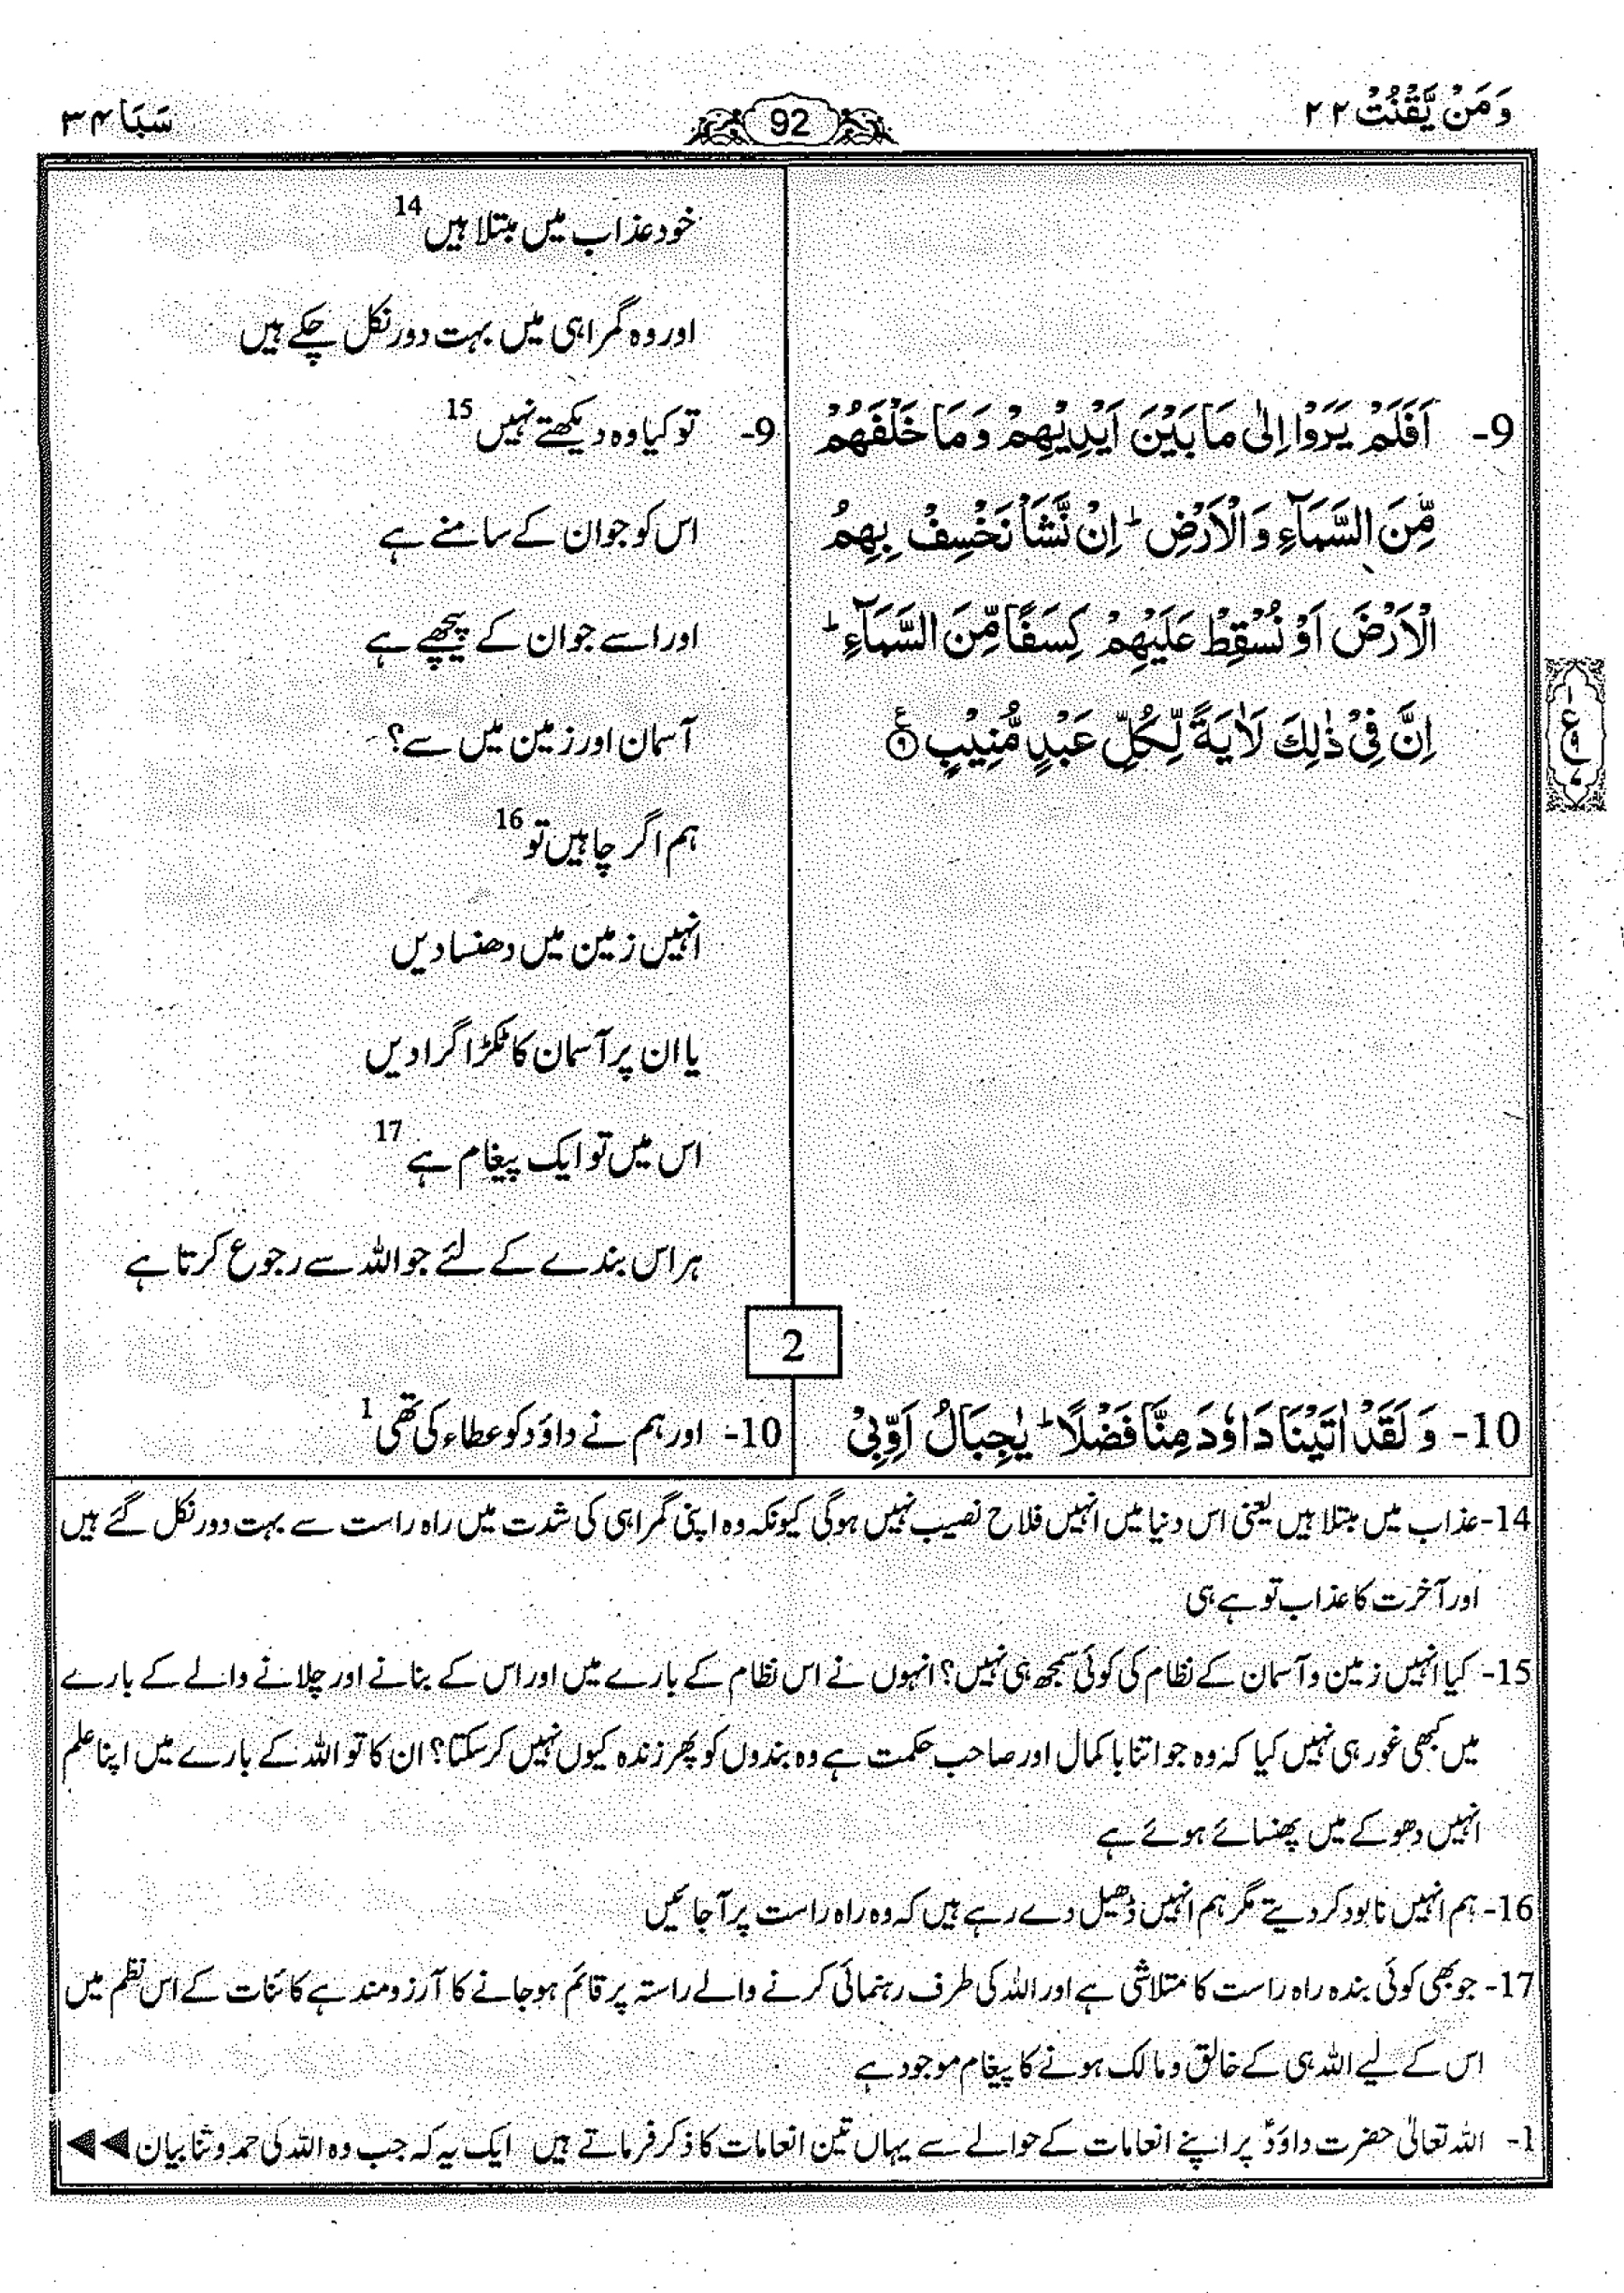 وَمَنْ يَّقْنُتْ ۲۲
92
سَبَا ۳۴
خود عذاب میں مبتلا ہیں 14
اور وہ گمراہی میں بہت دور نکل چکے ہیں
9- اَفَلَمْ يَرَوْا اِلٰى مَا بَيْنَ اَيْدِيْهِمْ وَمَا خَلْفَهُمْ
مِّنَ السَّمَآءِ وَالْاَرْضِ ؕ اِنْ نَّشَاْ نَخْسِفْ بِهِمُ
الْاَرْضَ اَوْ نُسْقِطْ عَلَيْهِمْ كِسَفًا مِّنَ السَّمَآءِ ؕ
اِنَّ فِيْ ذٰلِكَ لَاٰيَةً لِّكُلِّ عَبْدٍ مُّنِيْبٍ ۹ ع
9- تو کیا وہ دیکھتے نہیں 15
اس کو جو ان کے سامنے ہے
اور اسے جو ان کے پیچھے ہے
آسمان اور زمین میں سے؟
ہم اگر چاہیں تو 16
انہیں زمین میں دھنسا دیں
یا ان پر آسمان کا ٹکڑا گرا دیں
اس میں تو ایک پیغام ہے 17
ہر اس بندے کے لئے جو اللہ سے رجوع کرتا ہے
۱
ع
۹
۷
2
10- وَلَقَدْ اٰتَيْنَا دَاوٗدَ مِنَّا فَضْلًا ؕ يٰجِبَالُ اَوِّبِيْ
10- اور ہم نے داؤد کو عطاء کی تھی 1
14- عذاب میں مبتلا ہیں یعنی اس دنیا میں انہیں فلاح نصیب نہیں ہوگی کیونکہ وہ اپنی گمراہی کی شدت میں راہ راست سے بہت دور نکل گئے ہیں
اور آخرت کا عذاب تو ہے ہی
15- کیا انہیں زمین و آسمان کے نظام کی کوئی سمجھ ہی نہیں؟ انہوں نے اس نظام کے بارے میں اور اس کے بنانے اور چلانے والے کے بارے
میں کبھی غور ہی نہیں کیا کہ وہ جو اتنا با کمال اور صاحب حکمت ہے وہ بندوں کو پھر زندہ کیوں نہیں کر سکتا؟ ان کا تو اللہ کے بارے میں اپنا علم
انہیں دھوکے میں پھنسائے ہوئے ہے
16- ہم انہیں نابود کر دیتے مگر ہم انہیں ڈھیل دے رہے ہیں کہ وہ راہ راست پر آ جائیں
17- جو بھی کوئی بندہ راہ راست کا متلاشی ہے اور اللہ کی طرف رہنمائی کرنے والے راستہ پر قائم ہو جانے کا آرزومند ہے کائنات کے اس نظم میں
اس کے لیے اللہ ہی کے خالق و مالک ہونے کا پیغام موجود ہے
1- اللہ تعالیٰ حضرت داؤدؑ پر اپنے انعامات کے حوالے سے یہاں تین انعامات کا ذکر فرماتے ہیں ایک یہ کہ جب وہ اللہ کی حمد و ثنا بیان ◀◀